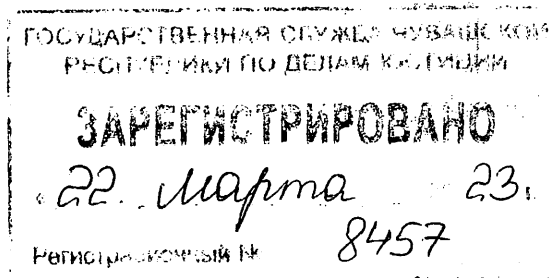 ГОСУДАРСТВЕННАЯ СЛУЖБА ЧУВАШСКОЙ
РЕСПУБЛИКИ ПО ДЕЛАМ ЮСТИЦИИ
ЗАРЕГИСТРИРОВАНО
« 22. Марта 23.
Регистрационный № 8457